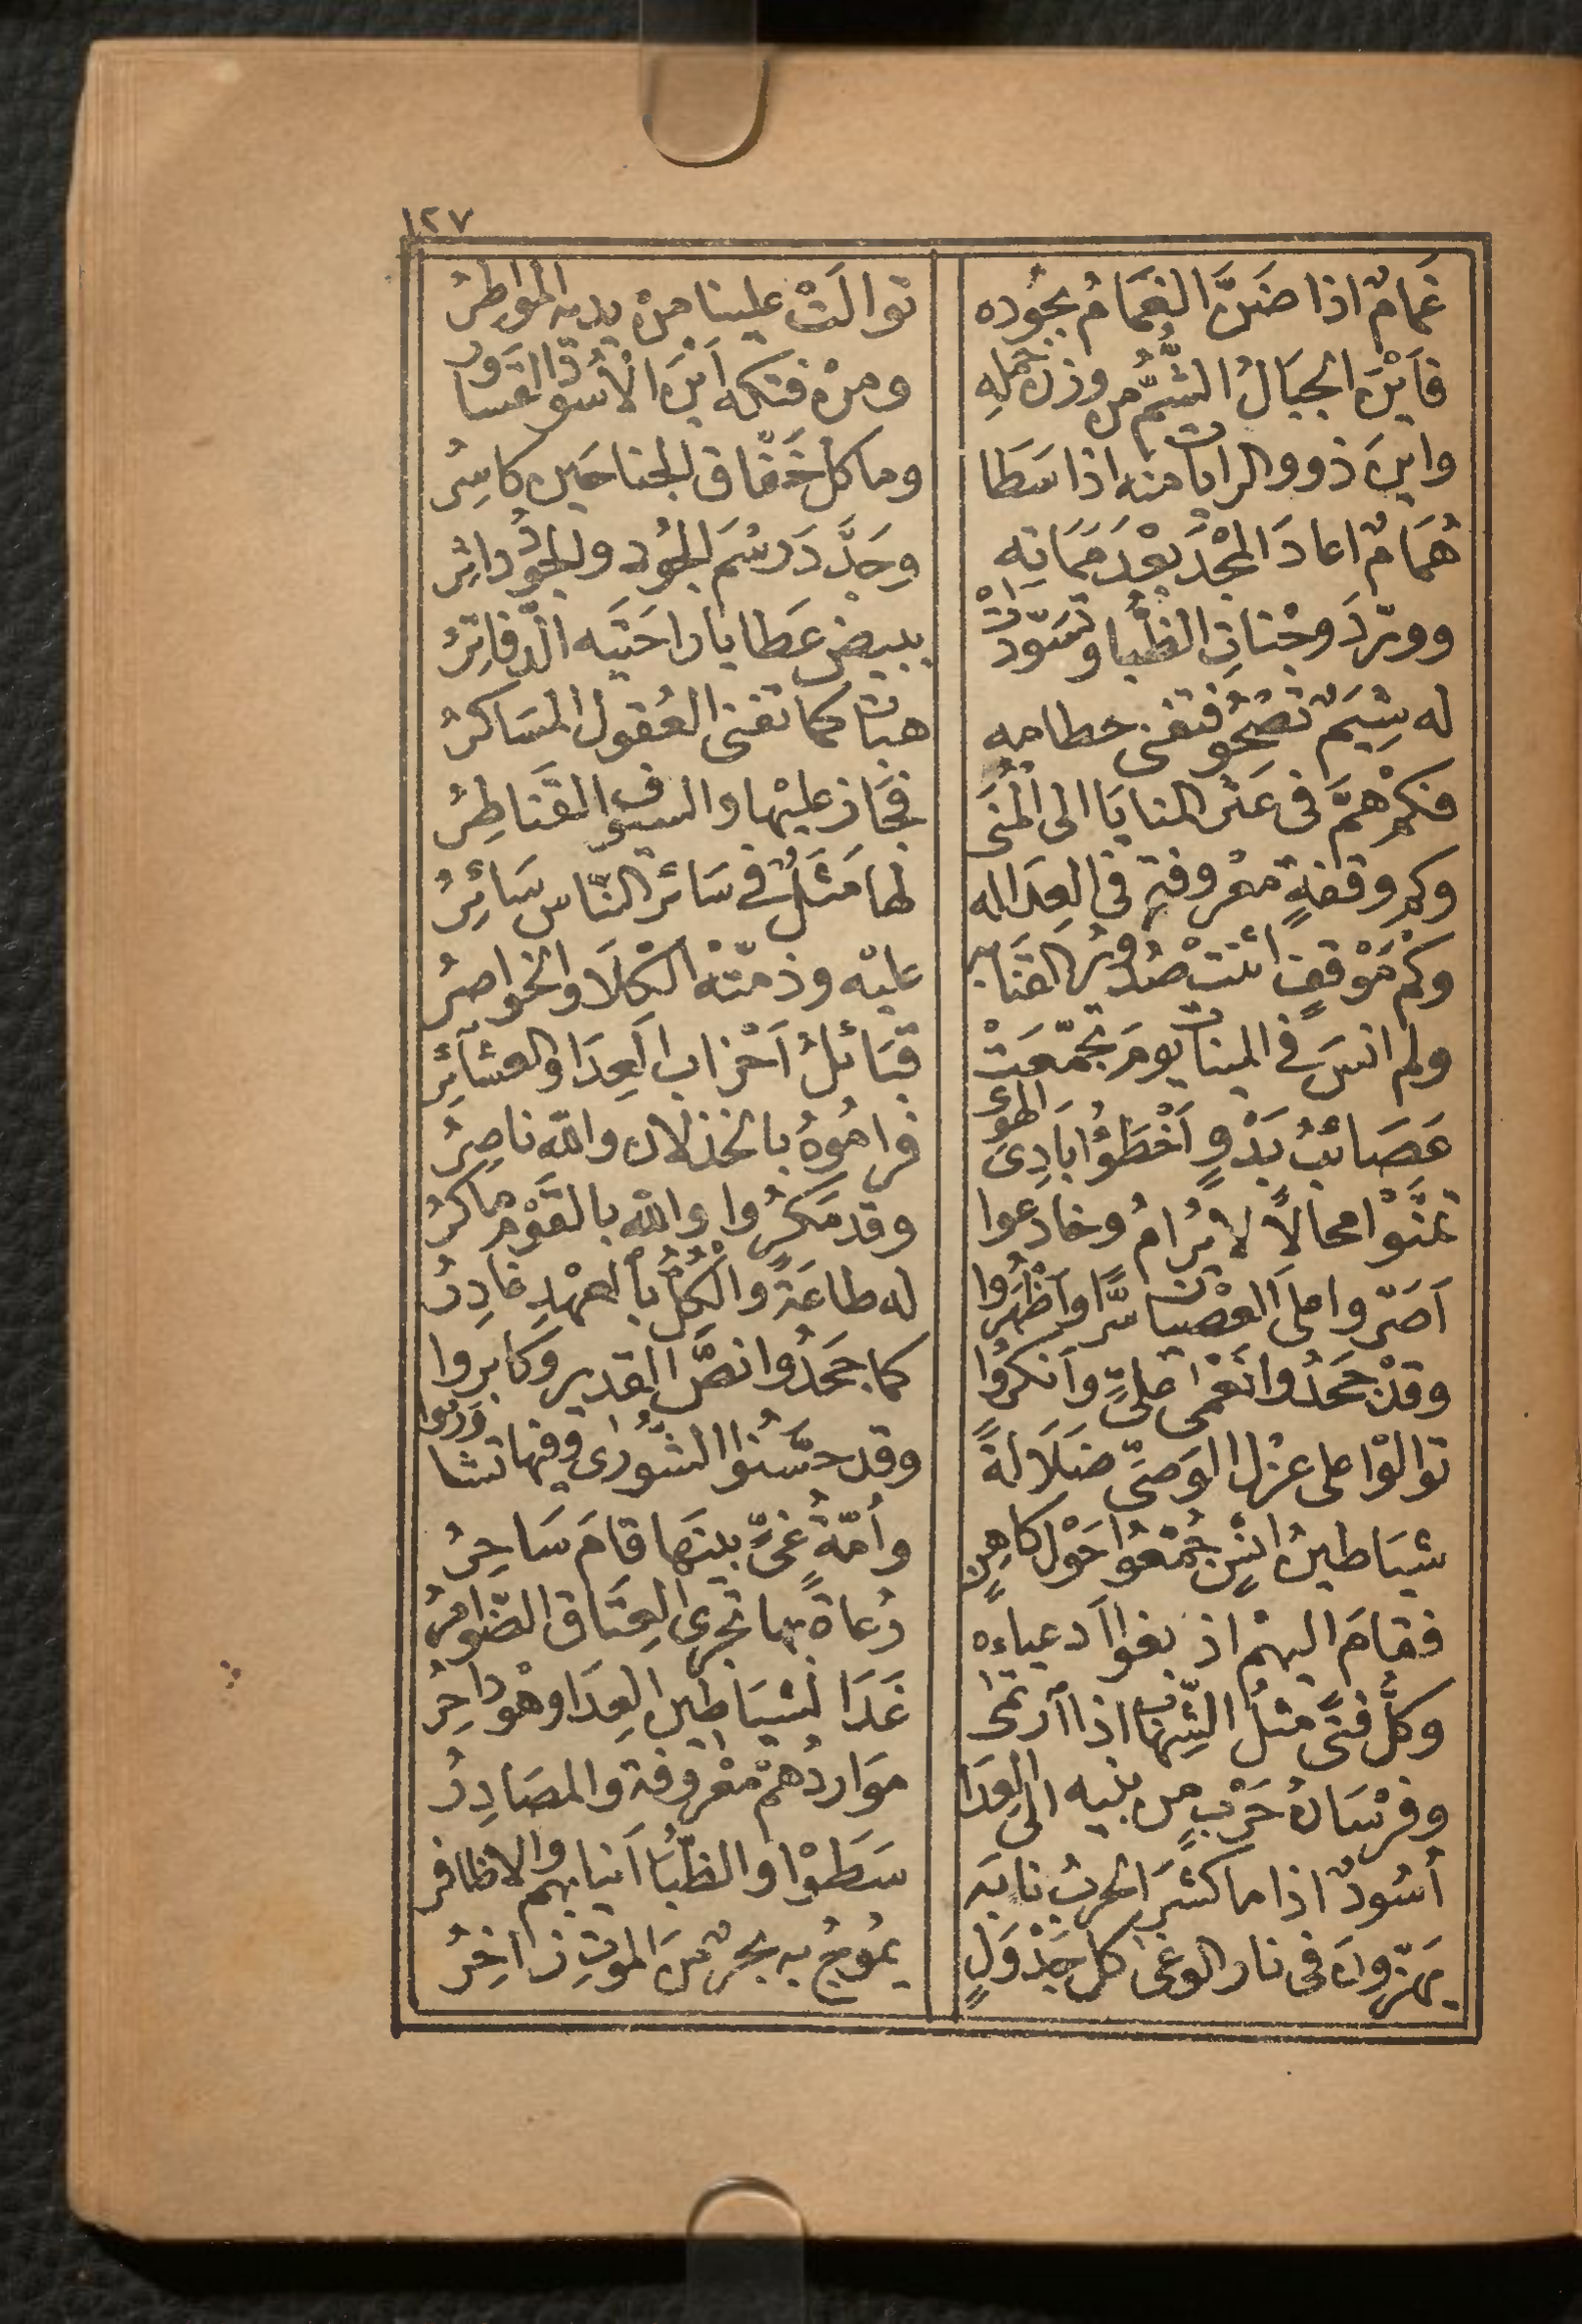 ١٢٧
غَمامٌ اذا ضَنَّ الغَمَامُ بجُوده توالَتْ علينا منْ يديه المواطِرُ
فأَيْنَ الجبَالُ الشُّمُّ من وزن حمله ومنْ فتكه أَيْنَ الأُسُودُ القسَاوِرُ
واينَ ذوو الرايات منه اذا سَطَا وما كل خَفّاق الجناحَين كاسِرُ
هُمَامٌ اعادَ المَجْدَ بعْدَ مَمَاتِه وجَدَّدَ رسْمَ الجُود والجُودُ داثِرُ
وورّدَ وجْناتِ الظُبا وتسَوّدَتْ ببيضِ عَطايا راحَتَيه الدّفاتِرُ
له شِيَمٌ تصْحُو فتفنى حطامه هبات كما تفنى العُقول المسَاكرُ
فكم همَّ في عَنْ المنايَا الى المُنَى فجَاز عليْها والسيوف القَناطِرُ
وكم وقفةٍ معْروفةٍ في العِدَا له لها مَثَلٌ في سَائر النّاس سَائِرُ
وكم مَوْقفٍ اثنتْ صُدُورُ القَنَا به عليْه وذمّتْه الكلَا والخواصِرُ
ولم انسَ في المينات يومَ تجمّعَتْ قبَائلُ أَحْزاب العِدَا والعشَائِرِ
عَصَائبُ بَدْوٍ أَخْطَؤُا بَادِيَ الهَوَى فرامُوهُ بالخذلان والله ناصِرُ
تمَنَّوْا محالًا لا يُرَامُ وخادعوا وقد مَكَرُوا والله بالقَوْم ماكرُ
أَصَرّوا على العصْيان سرًّا وأَظْهَرُوا له طاعَةً والكُلُّ بالعهْدِ غادِرُ
وقدْ جَحَدُوا نُعْمَى عَليٍّ وأَنكرُوا كما جحَدُوا نصَّ الغدير وكابروا
توالَوْا على عزْل الوَصيّ ضَلَالةً وقد حسَّنُوا الشُّورَى وفيها تشاوَروا
شيَاطينُ انْسٍ جُمِّعُوا حَوْل كاهِنٍ وأُمّةُ غيٍّ بينَها قامَ سَاحِرُ
فقامَ اليهمْ اذ بغوا أدعياءه دُعاةٌ بها تجري العِتَاق الضّوامِرُ
وكلُّ فتًى مثلُ الشّهاب اذا ارتمى غَدَا لشيَاطين العِدَا وهْو داحِرُ
وفرْسَانُ حَرْبٍ من بنيه الى العِدَا مَوَاردُهمْ معْروفة والمصَادِرُ
أُسُودٌ اذا ما كشّرَ الحربُ نابَه سَطَوْا والظُّبَا أَنيابهم والاظافر
يهزّونَ في نار الوغى كلَ جَدْوَلٍ يمُوجُ به بحْرٌ منَ الموتِ زاخِرُ